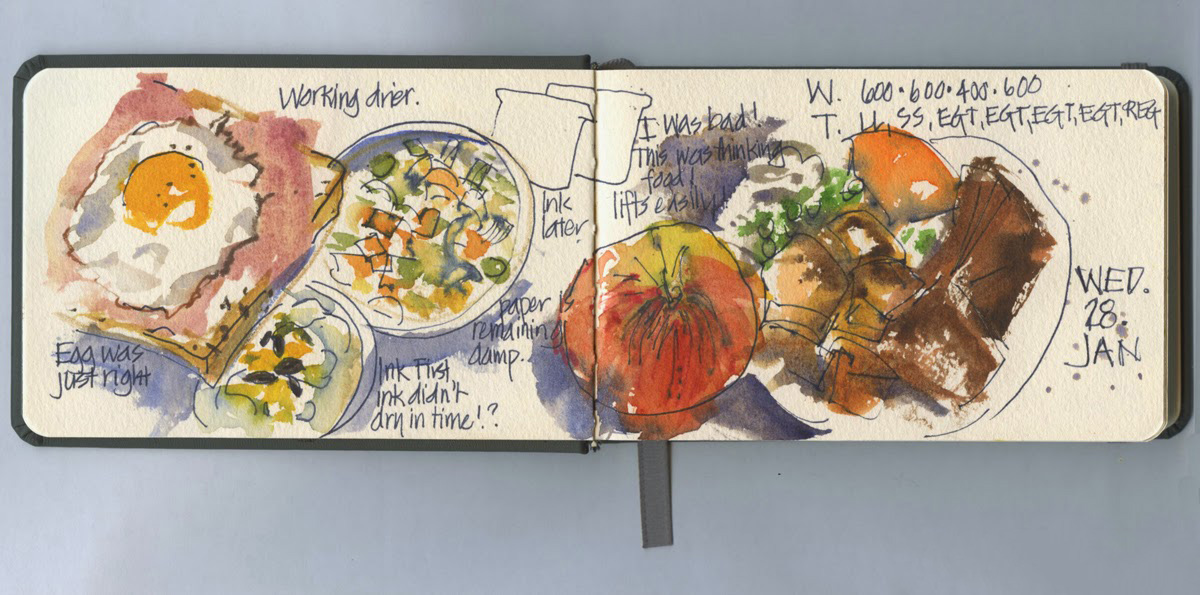 Working drier.
Egg was
just right
Ink first
Ink didn't
dry in time!?
paper is
remaining
damp...
Ink
later.
I was bad!
This was thinking
food!
lifts easily!
W. 600·600·400·600
T. SS, EGT, EGT, EGT, EGT, REG
WED.
28
JAN.